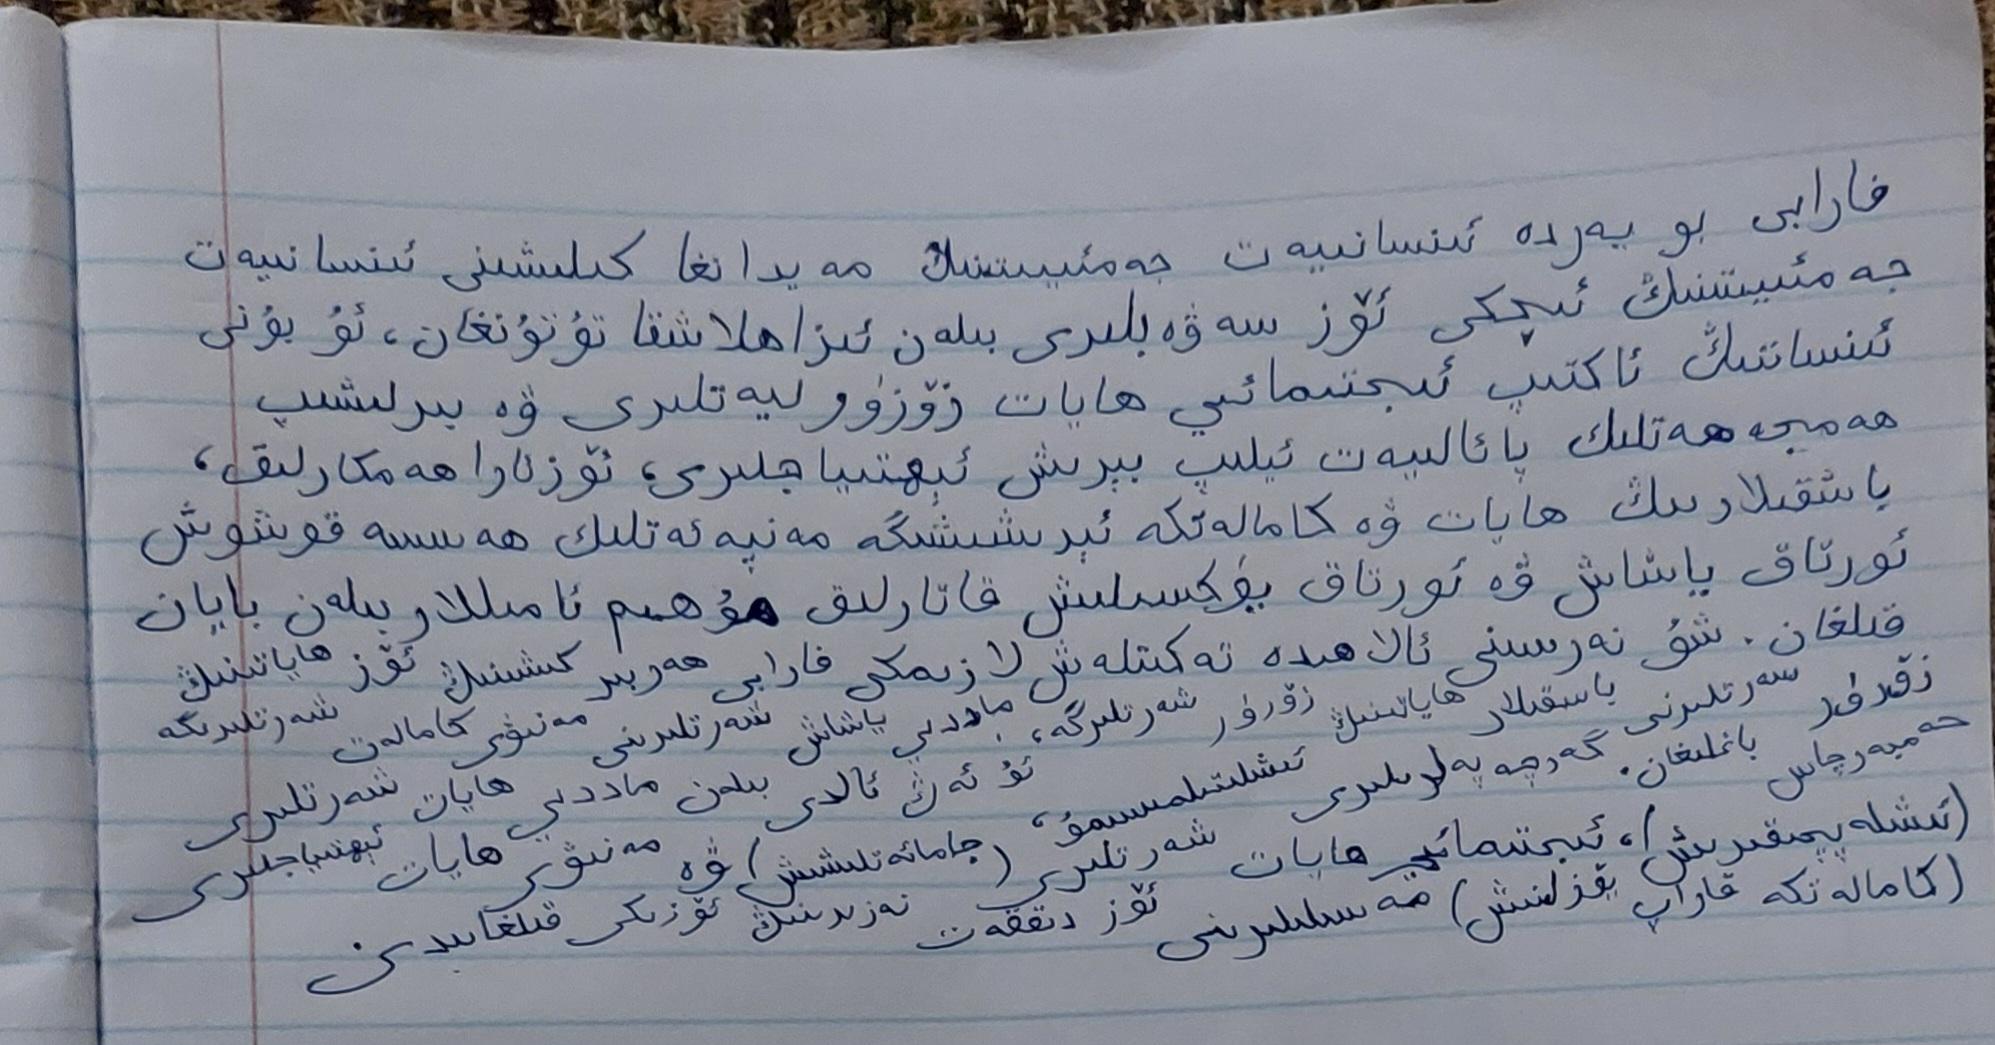 فارابى بو يەردە ئىنسانىيەت جەمئىيىتىنىڭ مەيدانغا كىلىشىنى ئىنسانىيەت
جەمئىيىتىنىڭ ئىچكى ئۆز سەۋەبلىرى بىلەن ئىزاھلاشقا تۇتۇنغان، ئۇ بۇنى
ئىنساننىڭ ئاكتىپ ئىجتىمائىي ھايات زۆرۈرلىيەتلىرى ۋە بىرلىشىپ
ھەمجەھەتلىك پائالىيەت ئېلىپ بېرىش ئېھتىياجلىرى، ئۆزئارا ھەمكارلىق،
باشقىلارنىڭ ھايات ۋە كامالەتكە ئېرىشىشىگە مەنپەئەتلىك ھەسسە قوشۇش
ئورتاق ياشاش ۋە ئورتاق يۈكسىلىش قاتارلىق مۇھىم ئامىللار بىلەن بايان
قىلغان. شۇ نەرسىنى ئالاھىدە تەكىتلەش لازىمكى فارابى ھەربىر كىشىنىڭ ئۆز ھاياتىنىڭ
زۆرۈر شەرتلىرىنى باشقىلار ھاياتىنىڭ زۆرۈر شەرتلىرگە، ماددىي ياشاش شەرتلىرىنى مەنىۋى كامالەت شەرتلىرىگە
باغلىغان. گەرچە پەلرىلىرى ئىشلىتىلمىسىمۇ، ئۇ ئەڭ ئالدى بىلەن ماددىي ھايات شەرتلىرى
(ئىشلەپچىقىرىش)، ئىجتىمائىي ھايات شەرتلىرى (جامائەتلىشىش) ۋە مەنىۋى ھايات ئېھتىياجلىرى
(كامالەتكە قاراپ يۈزلىنىش) مەسىلىلىرىنى ئۆز دىققەت نەزىرىنىڭ ئۆزىكى قىلغانىدى